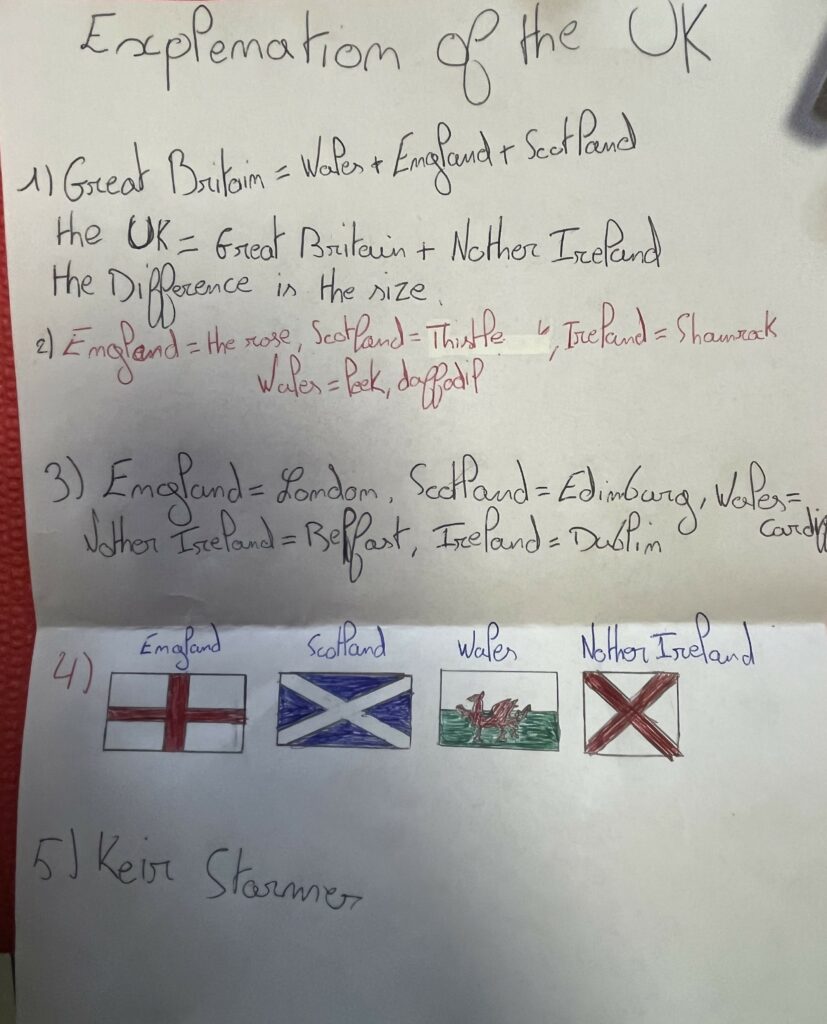 Explemation of the UK
1) Great Britain = Wales + England + Scotland
the UK = Great Britain + Nother Ireland
the Difference is the size.
2) England = the rose, Scotland = Thistle, Ireland = Shamrock
Wales = leek, daffodil
3) England = London, Scotland = Edimburg, Wales =
Cardif
Nother Ireland = Belfast, Ireland = Dublin
4) England Scotland Wales Nother Ireland
5) Keir Starmer